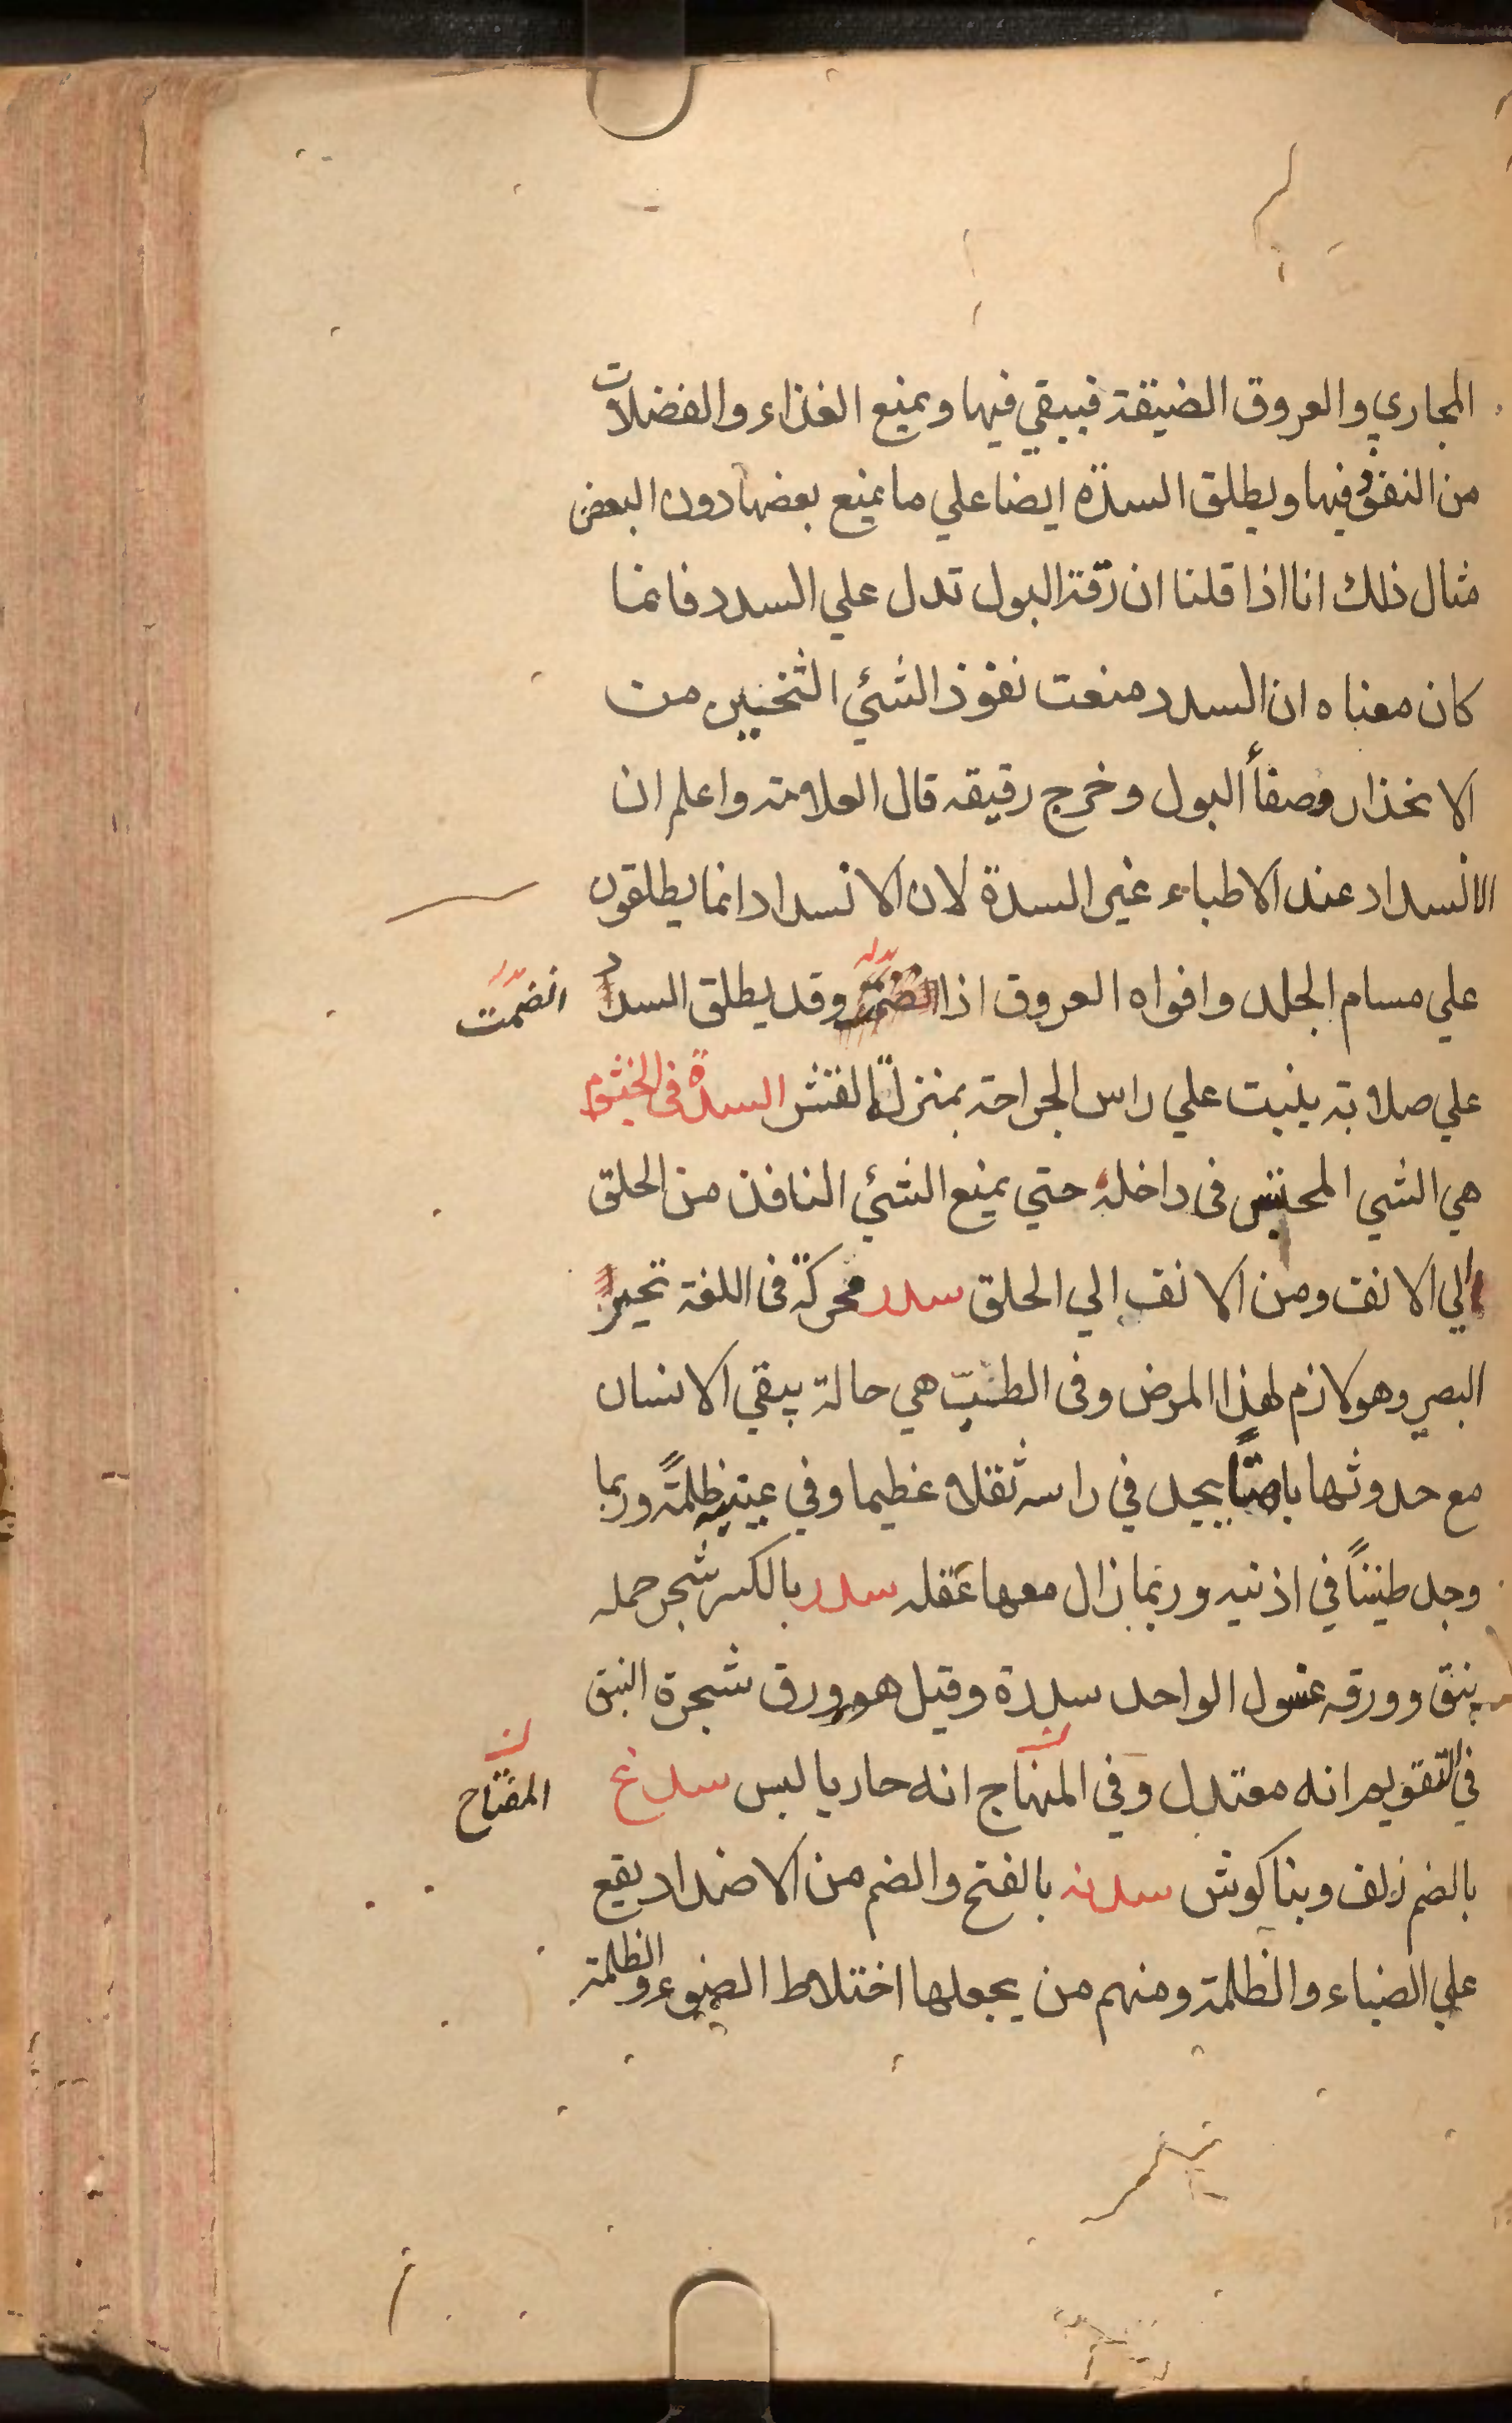 المجاري والعروق الضيقة فيبقي فيها ويمنع الغذاء والفضلات
من النفوذ فيها ويطلق السدّه ايضا علي ما يمنع بعضها دون البعض
مثال ذلك انا اذا قلنا ان رقة البول تدل علي السدد فانما
كان معناه ان السدد منعت نفوذ الشئي الثخين من
الانحذار وصفأ البول وخرج رقيقه قال العلامة واعلم ان
الانسداد عند الاطباء غير السدة لان الانسداد انما يطلقون
علي مسام الجلد وافواه العروق اذا وقد يطلق السدد
انضمت
علي صلابة ينبت علي راس الجراحة بمنزلة القشر السدة في الخيشوم
هي الشي المحتبس في داخله حتي يمنع الشئي النافذ من الحلق
الي الانف ومن الانف الي الحلق سدر محركة في اللغة تحير
البصر وهو لازم لهذا المرض وفي الطب هي حالة يبقي الانسان
مع حدوثها باهتًا يجد في راسه ثقلا عظيما وفي عينيه ظلمةً وربما
وجد طنينًا في اذنيه وربما زال معها عقله سدر بالكسر شجر حمله
نبق وورقه غسول الواحد سدرة وقيل هو ورق شجرة النبق
في التقويم انه معتدل وفي المنهاج انه حار يابس سدغ
المفتاح
بالضم زلف وبناكوش سدفه بالفتح والضم من الاضداد يقع
علي الضياء والظلمة ومنهم من يجعلها اختلاط الضوء والظلمة